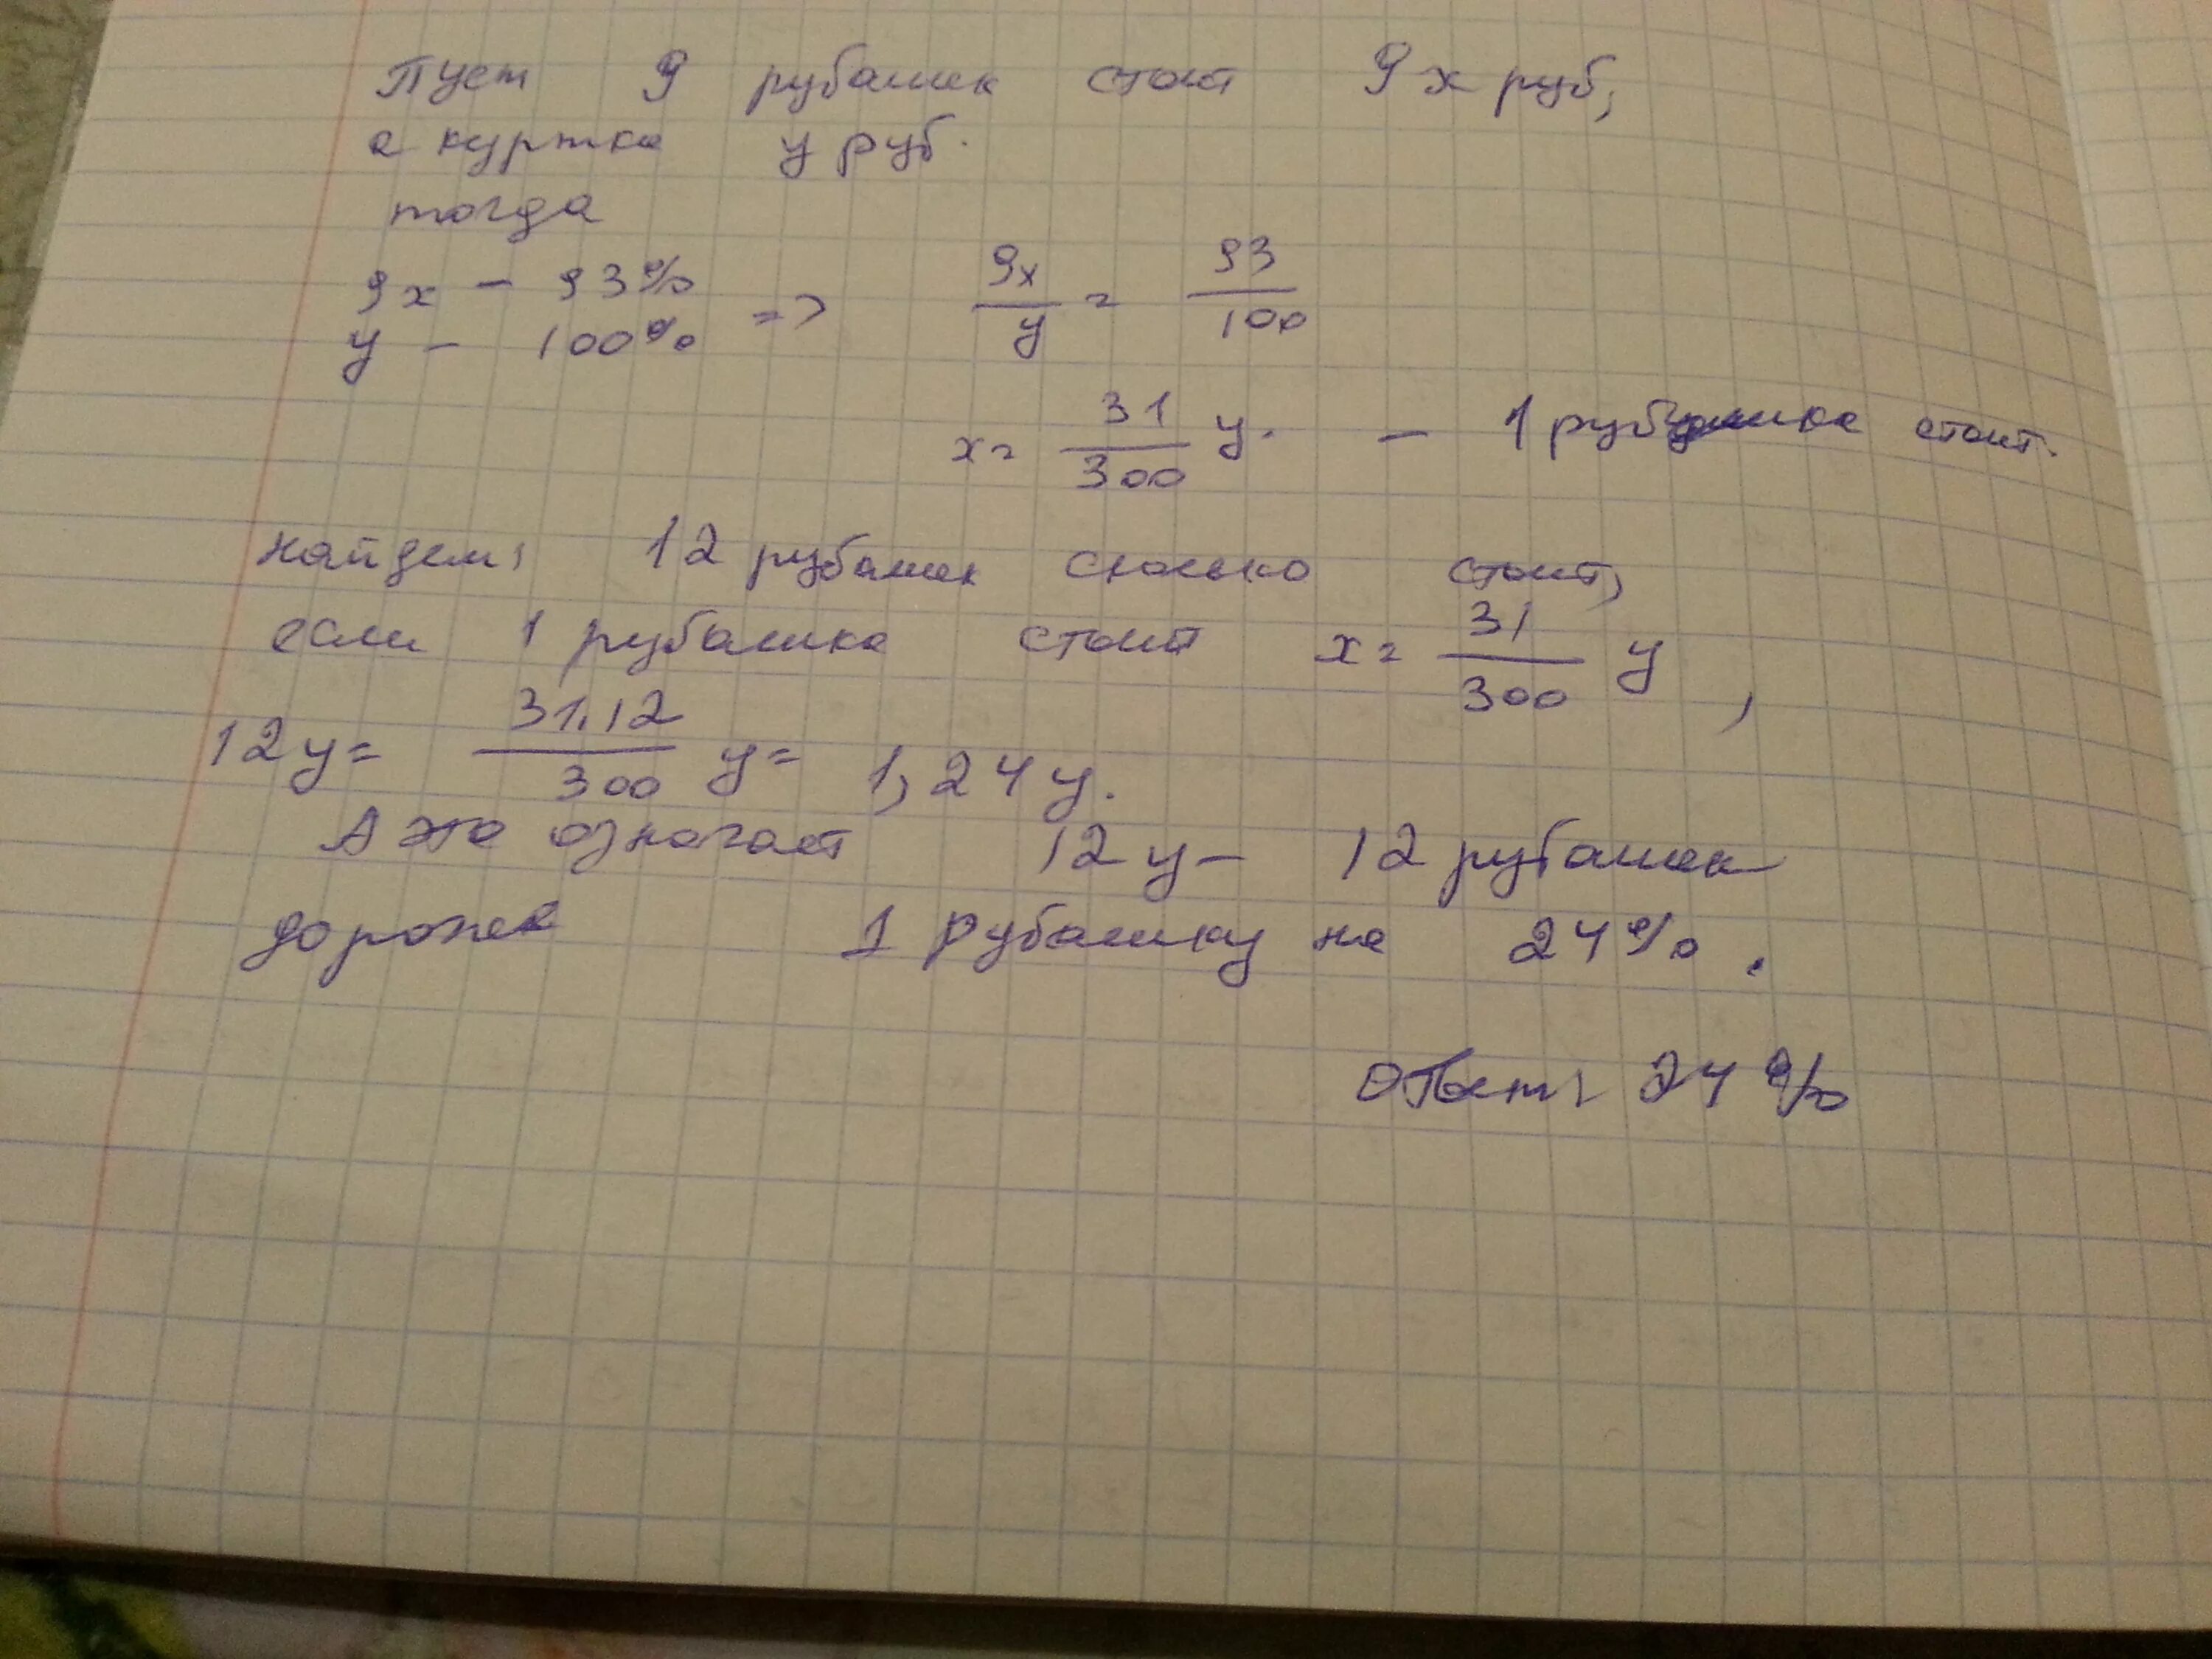 Пуст 9 рубашек стоит 9x руб,
а куртка y руб.
тогда
9x – 93%
y – 100% => 9x/y = 93/100
x = 31/300 y. – 1 рубашка стоит.
найдем: 12 рубашек сколько стоит,
если 1 рубашка стоит x = 31/300 y,
12y = 31.12/300 y = 1,24y.
А это означает 12y – 12 рубашек
дороже 1 рубашку на 24%.
Ответ: 24%